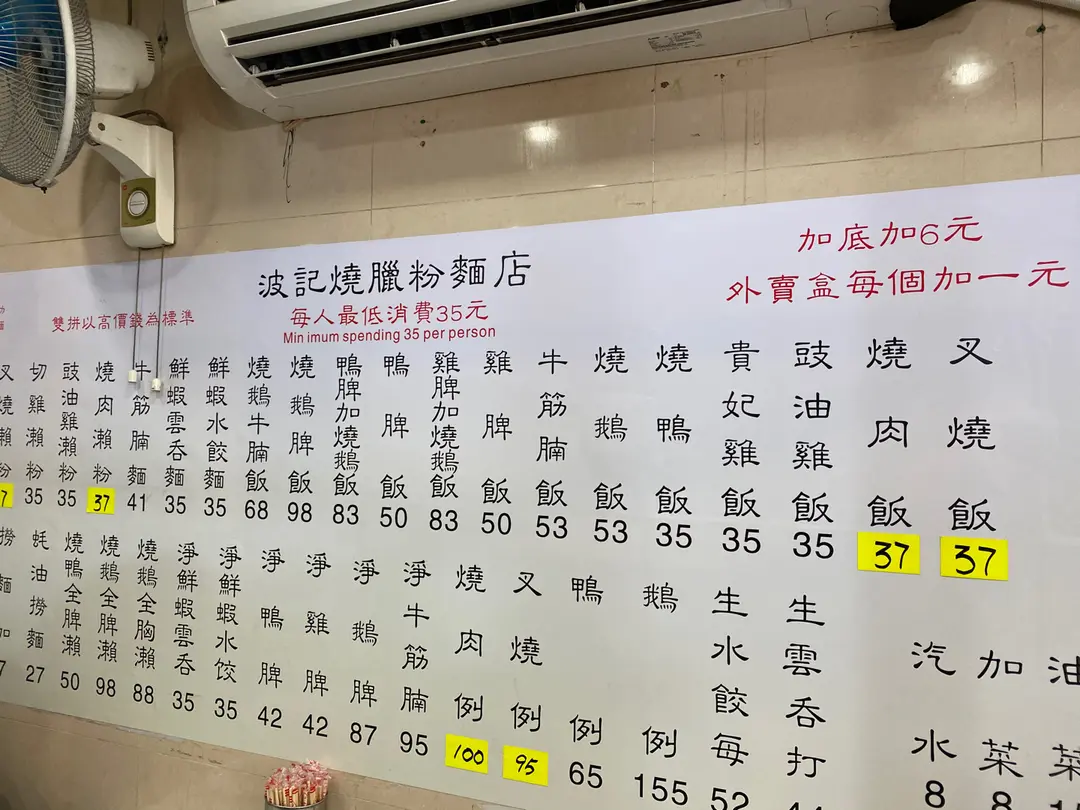 波記燒臘粉麵店
每人最低消費35元
Min imum spending 35 per person
雙拼以高價錢為標準
加底加6元
外賣盒每個加一元
叉燒飯 37
燒肉飯 37
豉油雞飯 35
貴妃雞飯 35
燒鴨飯 35
燒鵝飯 53
牛筋腩飯 53
雞脾飯 50
雞脾加燒鵝飯 83
鴨脾飯 50
鴨脾加燒鵝飯 83
燒鵝脾飯 98
燒鵝牛腩飯 68
鮮蝦水餃麵 35
鮮蝦雲吞麵 35
牛筋腩麵 41
燒肉瀨粉 37
豉油雞瀨粉 35
切雞瀨粉 35
叉燒瀨粉 7
油菜
加菜 8
汽水 8
生雲呑打
生水餃每 52
鵝例 155
鴨例 65
叉燒例 95
燒肉例 100
淨牛筋腩 95
淨鵝脾 87
淨雞脾 42
淨鴨脾 42
淨鮮蝦水餃 35
淨鮮蝦雲呑 35
燒鵝全胸瀨 88
燒鵝全脾瀨 98
燒鴨全脾瀨 50
蚝油撈麵 27
撈麵加 7